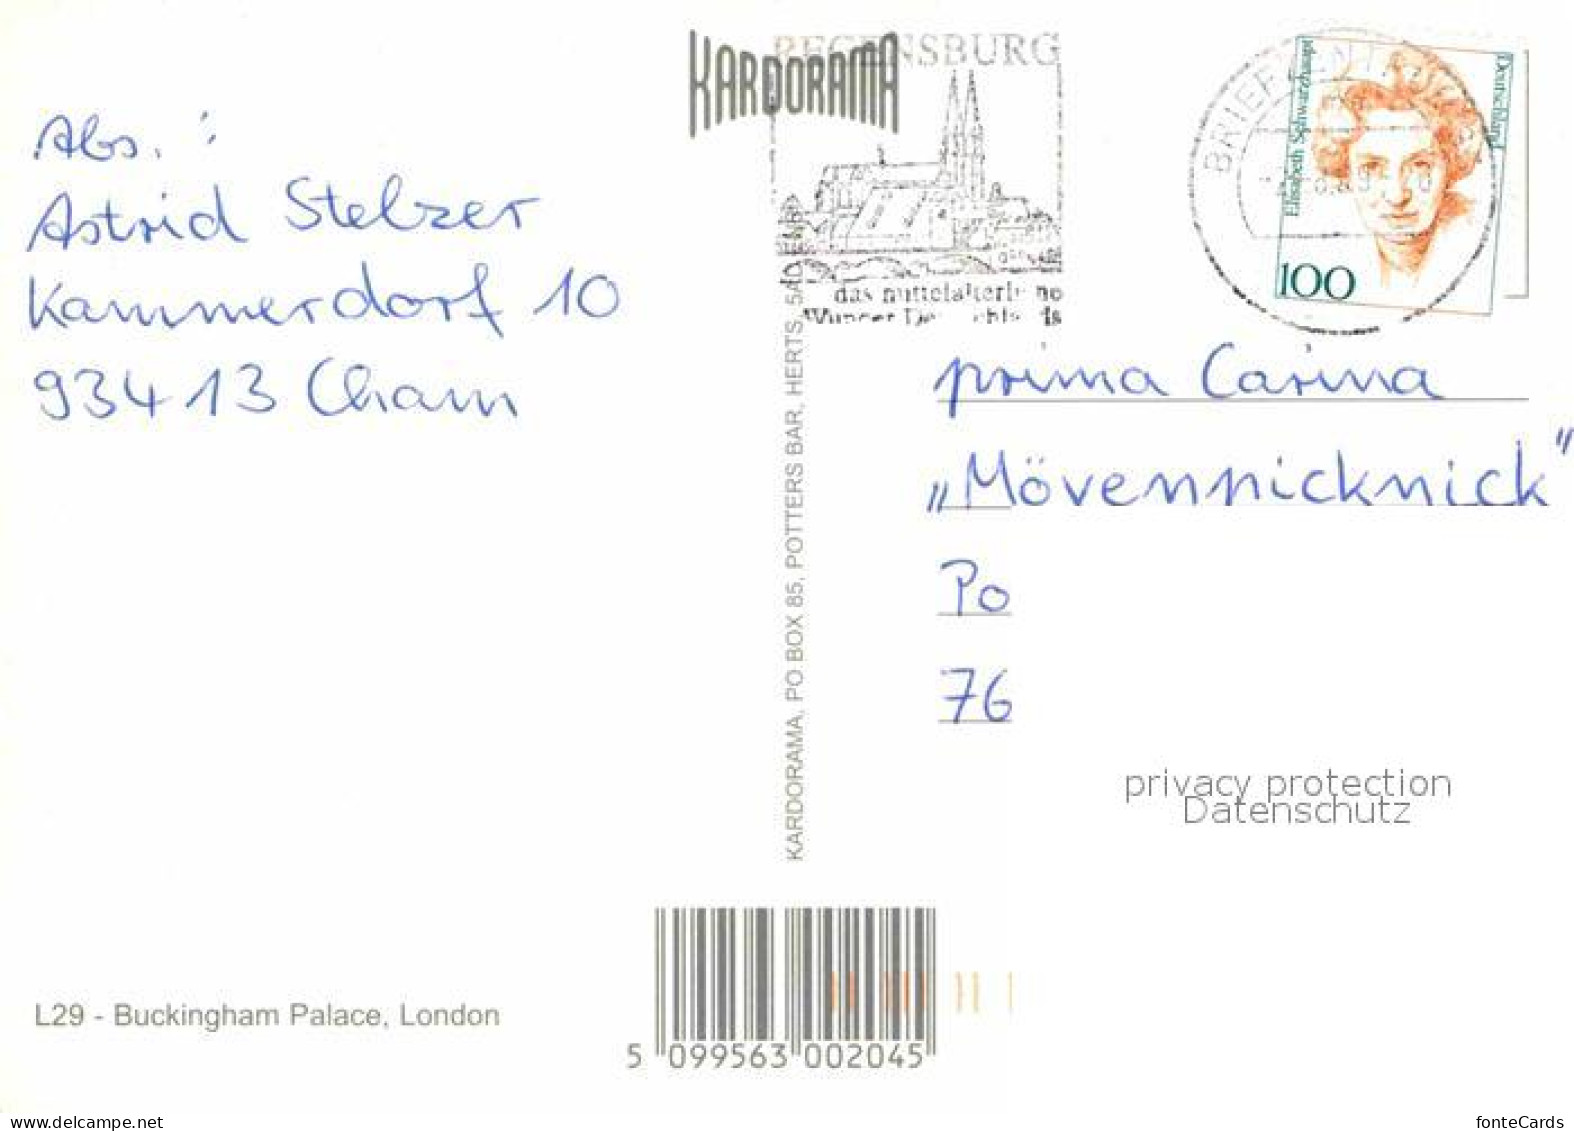 Abs.:
Astrid Stelzer
Kammerdorf 10
93413 Cham
KARDORAMA
REGENSBURG
das mittelalterliche
Wunder Deutschlands
BRIEFZENTRUM
Elisabeth Schwarzhaupt
Deutschland
100
prima Carina
„Mövennnicknick"
Po
76
privacy protection
Datenschutz
KARDORAMA, PO BOX 85, POTTERS BAR, HERTS,
L29 - Buckingham Palace, London
5 099563 002045
www.delcampe.net
fonteCards